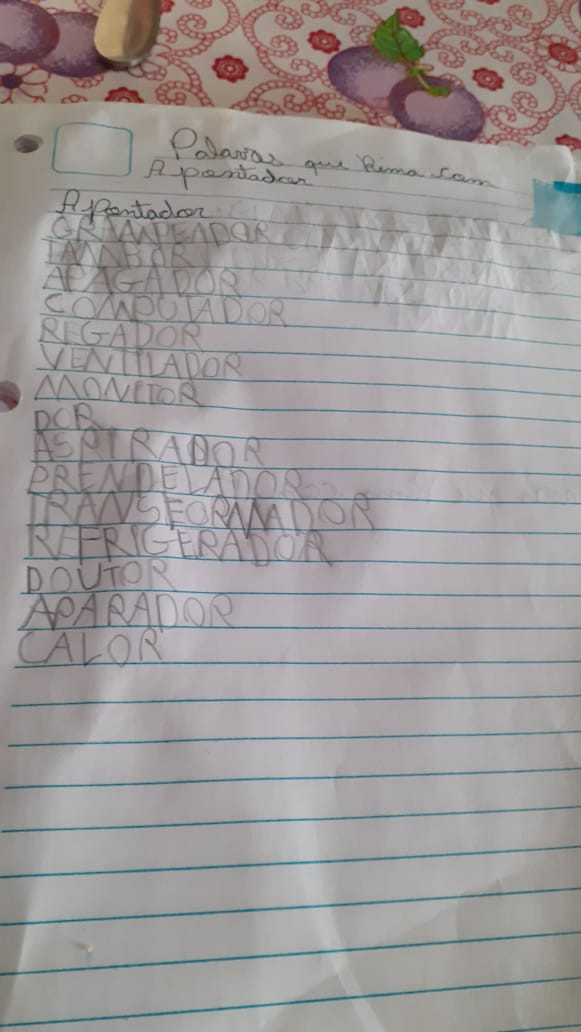 Palavras que Rima com
Apontador
Apontador
GRAMPEADOR
TAMBOR
APAGADOR
COMPUTADOR
REGADOR
VENTILADOR
MONITOR
DOR
ASPIRADOR
PRENDELADOR
TRANSFORMADOR
REFRIGERADOR
DOUTOR
APARADOR
CALOR